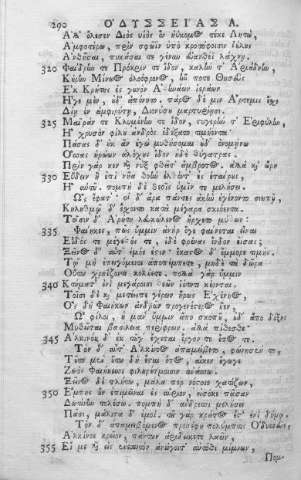 290 ὈΔΥΣΣΕΙΑΣ Λ.
Ἀλλ' ὄλεσεν Διὸς υἱὸς ὃν ἠΰκομος τέκε Λητώ,
Ἀμφοτέρω, πρίν σφωϊν ὑπὸ κροτάφοισιν ἰούλους
Ἀνθῆσαι, πυκάσαι τε γένυν εὐανθέϊ λάχνῃ.
320 Φαίδρην τε Πρόκριν τε ἴδον, καλήν τ' Ἀριάδνην,
Κούρην Μίνωος ὀλοόφρονος, ἥν ποτε Θησεὺς
Ἐκ Κρήτης ἐς γουνὸν Ἀθηνάων ἱεράων
Ἦγε μὲν, οὐδ' ἀπόνητο· πάρος δέ μιν Ἄρτεμις ἔσχε
Δίῃ ἐν ἀμφιρύτῃ, Διονύσου μαρτυρίῃσι.
325 Μαῖράν τε Κλυμένην τε ἴδον, στυγερήν τ' Ἐριφύλην,
Ἣ χρυσὸν φίλου ἀνδρὸς ἐδέξατο τιμήεντα·
Πάσας δ' οὐκ ἂν ἐγὼ μυθήσομαι οὐδ' ὀνομήνω
Ὅσσας ἡρώων ἀλόχους ἴδον ἠδὲ θύγατρας·
Πρὶν γάρ κεν καὶ νὺξ φθῖτ' ἄμβροτος, ἀλλὰ καὶ ὥρη
330 Εὕδειν ἢ ἐπὶ νῆα θοὴν ἐλθόντ' ἐς ἑταίρους,
Ἢ αὐτοῦ. πομπὴ δὲ θεοῖς ὑμῖν τε μελήσει.
Ὣς ἔφατ'· οἱ δ' ἄρα πάντες ἀκὴν ἐγένοντο σιωπῇ,
Κηληθμῷ δ' ἔσχοντο κατὰ μέγαρα σκιόεντα.
Τοῖσιν δ' Ἀρήτη λευκώλενος ἤρχετο μύθων·
335 Φαίηκες, πῶς ὔμμιν ἀνὴρ ὅδε φαίνεται εἶναι
Εἶδός τε μέγεθός τε, ἰδὲ φρένας ἔνδον ἐΐσας;
Ξεῖνος δ' αὖτ' ἐμός ἐστιν· ἕκαστος δ' ἔμμορε τιμῆς.
Τῷ μὴ ἐπειγόμενοι ἀποπέμπετε, μηδὲ τὰ δῶρα
Οὕτω χρηΐζοντι κολούετε. πολλὰ γὰρ ὔμμιν
340 Κτήματ' ἐνὶ μεγάροισι θεῶν ἰότητι κέονται.
Τοῖσι δὲ καὶ μετέειπε γέρων ἥρως Ἐχένηος,
Ὃς δὴ Φαιήκων ἀνδρῶν προγενέστερος ἦεν.
Ὦ φίλοι, οὐ μὰν ὕμμιν ἀπὸ σκοποῦ, οὐδ' ἀπὸ δόξης
Μυθεῖται βασίλεια περίφρων, ἀλλὰ πίθεσθε·
345 Ἀλκινόου δ' ἐκ τοῦδ' ἔχεται ἔργον τε ἔπος τε.
Τὸν δ' αὖτ' Ἀλκίνοος ἀπαμείβετο, φώνησέν τε,
Τοῦτο μὲν οὕτω δὴ ἔσται ἔπος, αἴκεν ἔγωγε
Ζωὸς Φαιήκεσσι φιληρέτμοισιν ἀνάσσω.
Ξεῖνος δὲ τλήτω, μάλα περ νόστοιο χατίζων,
350 Ἔμπης οὖν ἐπιμεῖναι ἐς αὔριον, εἰσόκε πᾶσαν
Δωτίνην τελέσω. πομπὴ δ' ἄνδρεσσι μελήσει
Πᾶσι, μάλιστα δ' ἐμοί. τοῦ γὰρ κράτος ἔστ' ἐνὶ δήμῳ.
Τὸν δ' ἀπαμειβόμενος προσέφη πολύμητις Ὀδυσσεύς,
Ἀλκίνοε κρεῖον, πάντων ἀριδείκετε λαῶν,
355 Εἴ με καὶ εἰς ἐνιαυτὸν ἀνώγοιτ' αὐτόθι μίμνειν,
Πομ-